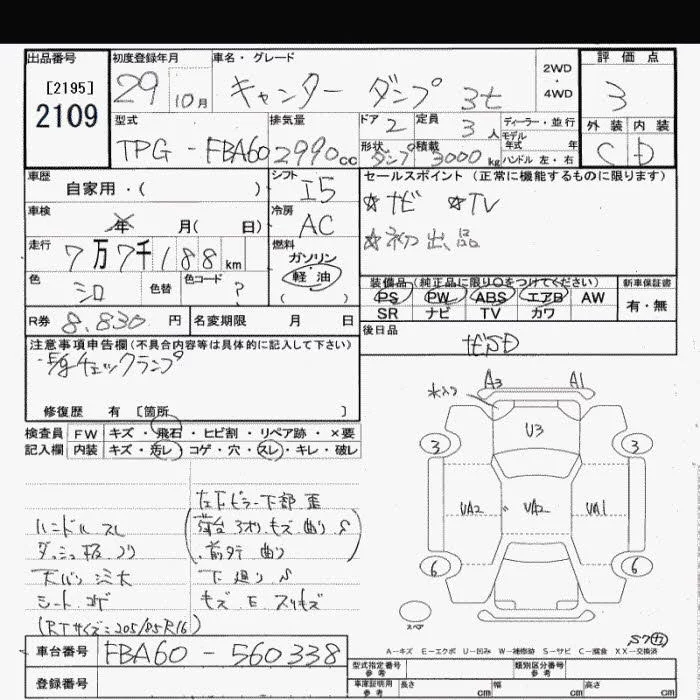 出品番号 初度登録年月 車名・グレード 2WD ・ 4WD 評価点
[2195] 29 10月 キャンター ダンプ 3t 3
2109 型式 排気量 ドア 2 定員 3人 ディーラー・並行 外装 内装
TPG-FBA60 2990cc 形状 ダンプ 積載 3000kg モデル年式 年 C D
ハンドル 左・右
車歴 シフト セールスポイント (正常に機能するものに限ります)
自家用・( ) I5 ☆ナビ ☆TV
車検 年 月( 日) 冷房 AC ☆初出品
走行 7万7千188km 燃料 ガソリン
軽・油
( )
色 シロ 色替 色コード ? 装備品 (純正品に限り○をつけてください) 新車保証書
PS PW ABS エアB AW 有・無
SR ナビ TV カワ
R券 8,830円 名変期限 月 日 後日品
注意事項申告欄(不具合内容等は具体的に記入して下さい) ナビSD
チェックランプ
修復歴 有 [箇所 ]
検査員 FW キズ・飛石・ヒビ割・リペア跡・×要
記入欄 内装 キズ・汚レ・コゲ・穴・スレ・キレ・破レ
A3 A1
U3
3 3
UA2 UA2 UA1
6 6
スペア
左下ピラー下部 歪
ハンドル スレ 荷台 キズ 曲り S
ダッシュ板 ノリ 前タテ 曲り
天バリ シミ大 下廻り S
シート コゲ キズ E スリキズ
(RTサイズ=205/85R16)
A-キズ E-エクボ U-凹み W-補修跡 S-サビ C-腐食 XX-交換済
車台番号 FBA60-560338 型式指定番号 参考 類別区分番号 参考
登録番号 車庫証明用 参考 長さ cm 幅 cm 高さ cm